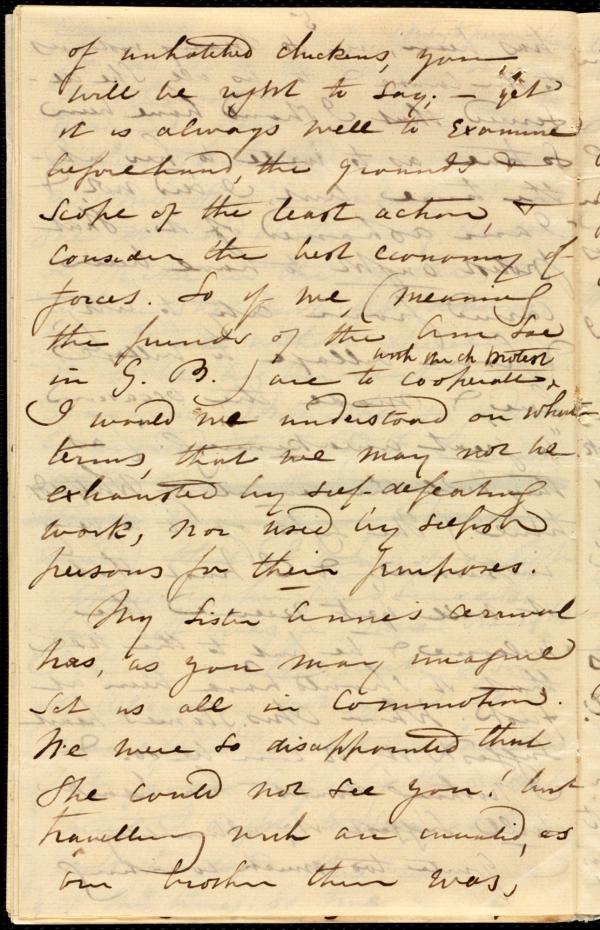 of unhatched chickens, you
will be right to say; – yet
it is always well to examine
beforehand, the grounds &
scope of the least action, &
consider the best economy of
forces. So if we, (meaning
the friends of the Am Soc
with
in G. B.) are to cooperate,
I would we understood on what
terms, that we may not be
exhausted by self-defeating
work, nor used by selfish
persons for their purposes.
My Sister Anne's arrival
has, as you may imagine
set us all in commotion.
We were so disappointed that
She could not see you! but
travelling with an invalid, as
our brother then was,